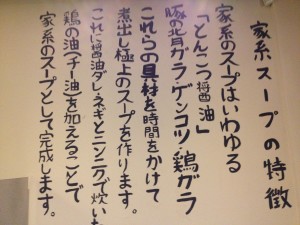 家系スープの特徴
家系のスープはいわゆる
「とんこつ醤油」
豚の背ガラ・ゲンコツ・鶏ガラ
これらの具材を時間をかけて
煮出し極上のスープを作ります。
これに醤油ダレ・ネギとニンニクで炊いた
鶏の油(チー油)を加えることで
家系のスープとして完成します。